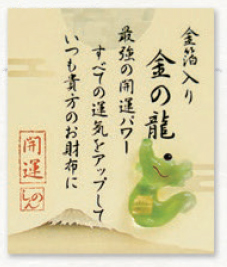 金箔入り
金の龍
最強の開運パワー
すべての運気をアップして
いつも貴方のお財布に
開運